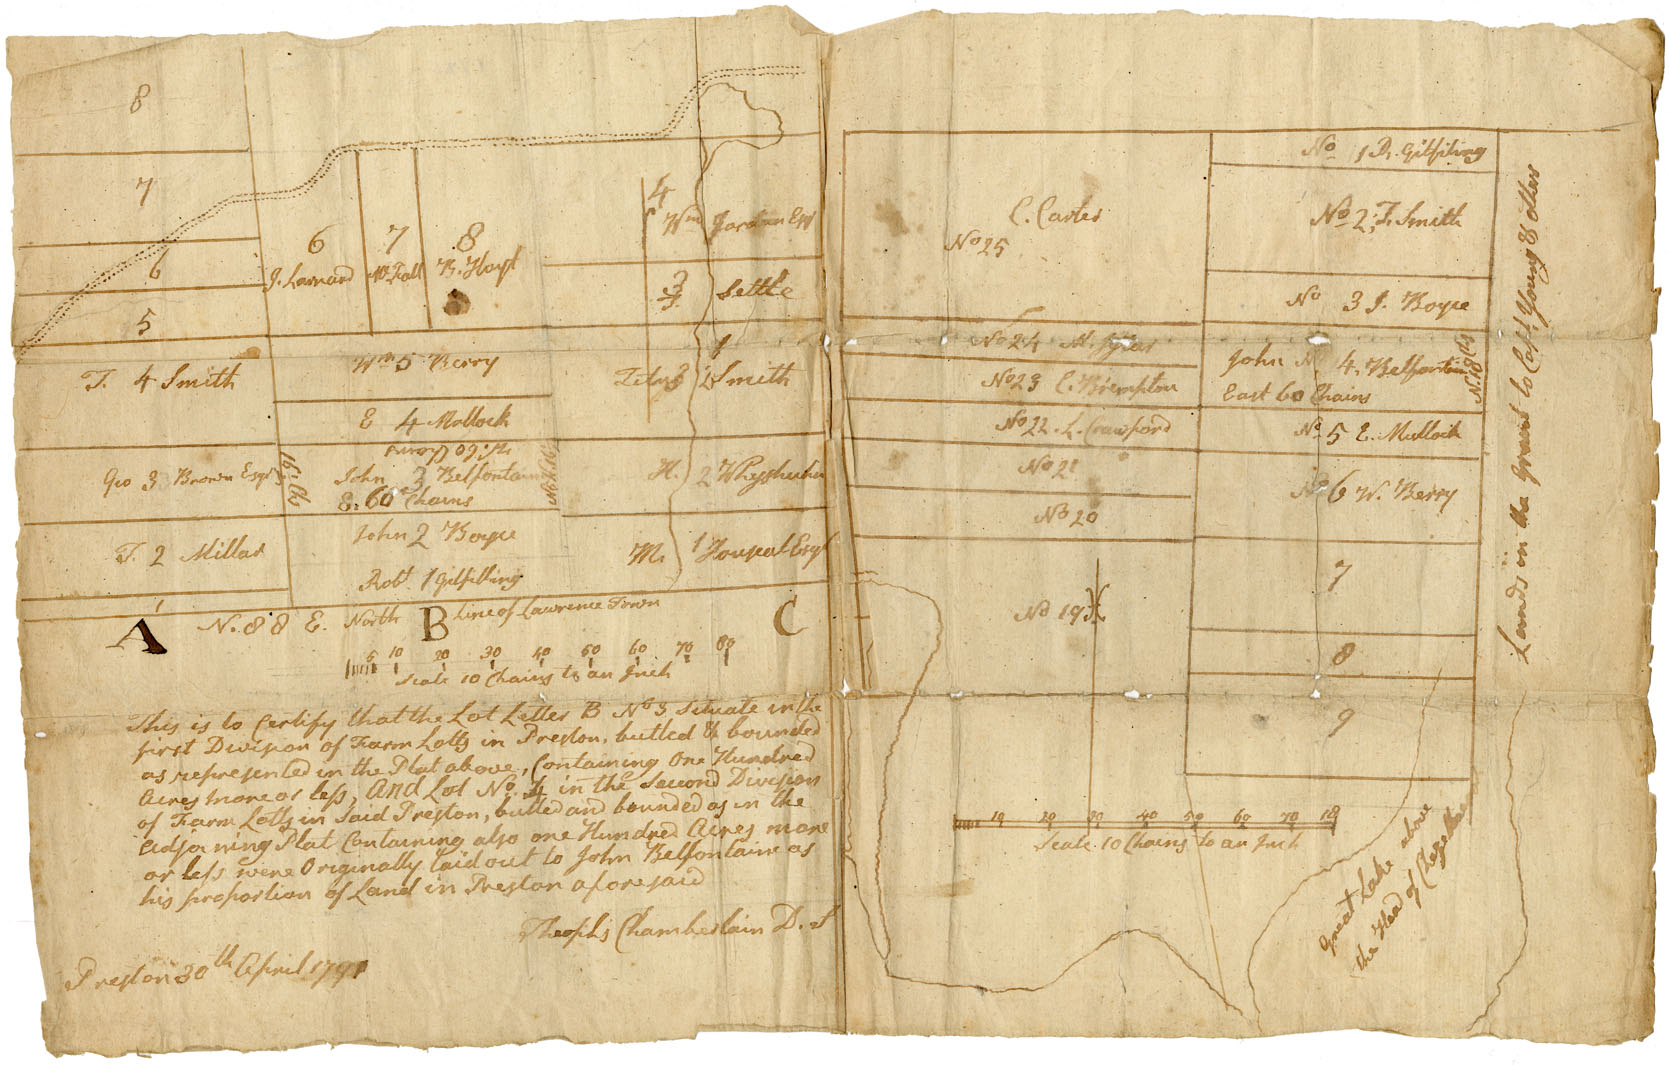 8
7
6
5
T. 4 Smith
Geo 3 Brown Esqr
T. 2 Millar
1
6
J. Larnard
7
8
B. Hoyt
Wm 5 Berry
E 4 Mollock
John 3 Belfontain
E. 60 Chains
John 2 Boyce
Robt 1 Gilfilling
4
Wm
3
Settle
Titus 2 Smith
H. 2
M. 1 Esqr
A
N. 88 E. North
B
Line of Lawrence Town
C
5 10 20 30 40 50 60 70 80
Scale 10 Chains to an Inch
This is to Certify that the Lot Letter B No 3 Situate in the
first Division of Farm Lotts in Preston, butted & bounded
as represented in the Plat above, Containing One Hundred
Acres more or less, And Lot No. 4 in the Second Division
of Farm Lotts in Said Preston, butted and bounded as in the
adjoining Plat Containing also one Hundred Acres more
or less were Originally laid out to John Belfontaine as
his proportion of Land in Preston aforesaid
Theophs Chamberlain D. S
Preston 30th April 1791
C. Carter
No 25
No 24
No 23 C. Brempton
No 22. L. Crawford
No 21
No 20
No 19
No 1 D. Gilfiling
No 2, T. Smith
No 3 J. Boyce
John No 4, Belfontain
East 60 Chains
No 5 E. Mullock
No 6 W. Berry
7
8
9
Lands in the Grant to Capt. Young & others
10 20 30 40 50 60 70 18
Scale 10 Chains to an Inch
Great Lake above
the Head of